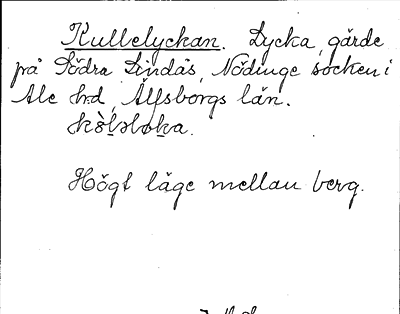 Kullelyckan. Lycka, gärde
på Södra Lindås, Nödinge socken i
Ale hd, Älfsborgs län.
Högt läge mellan berg.